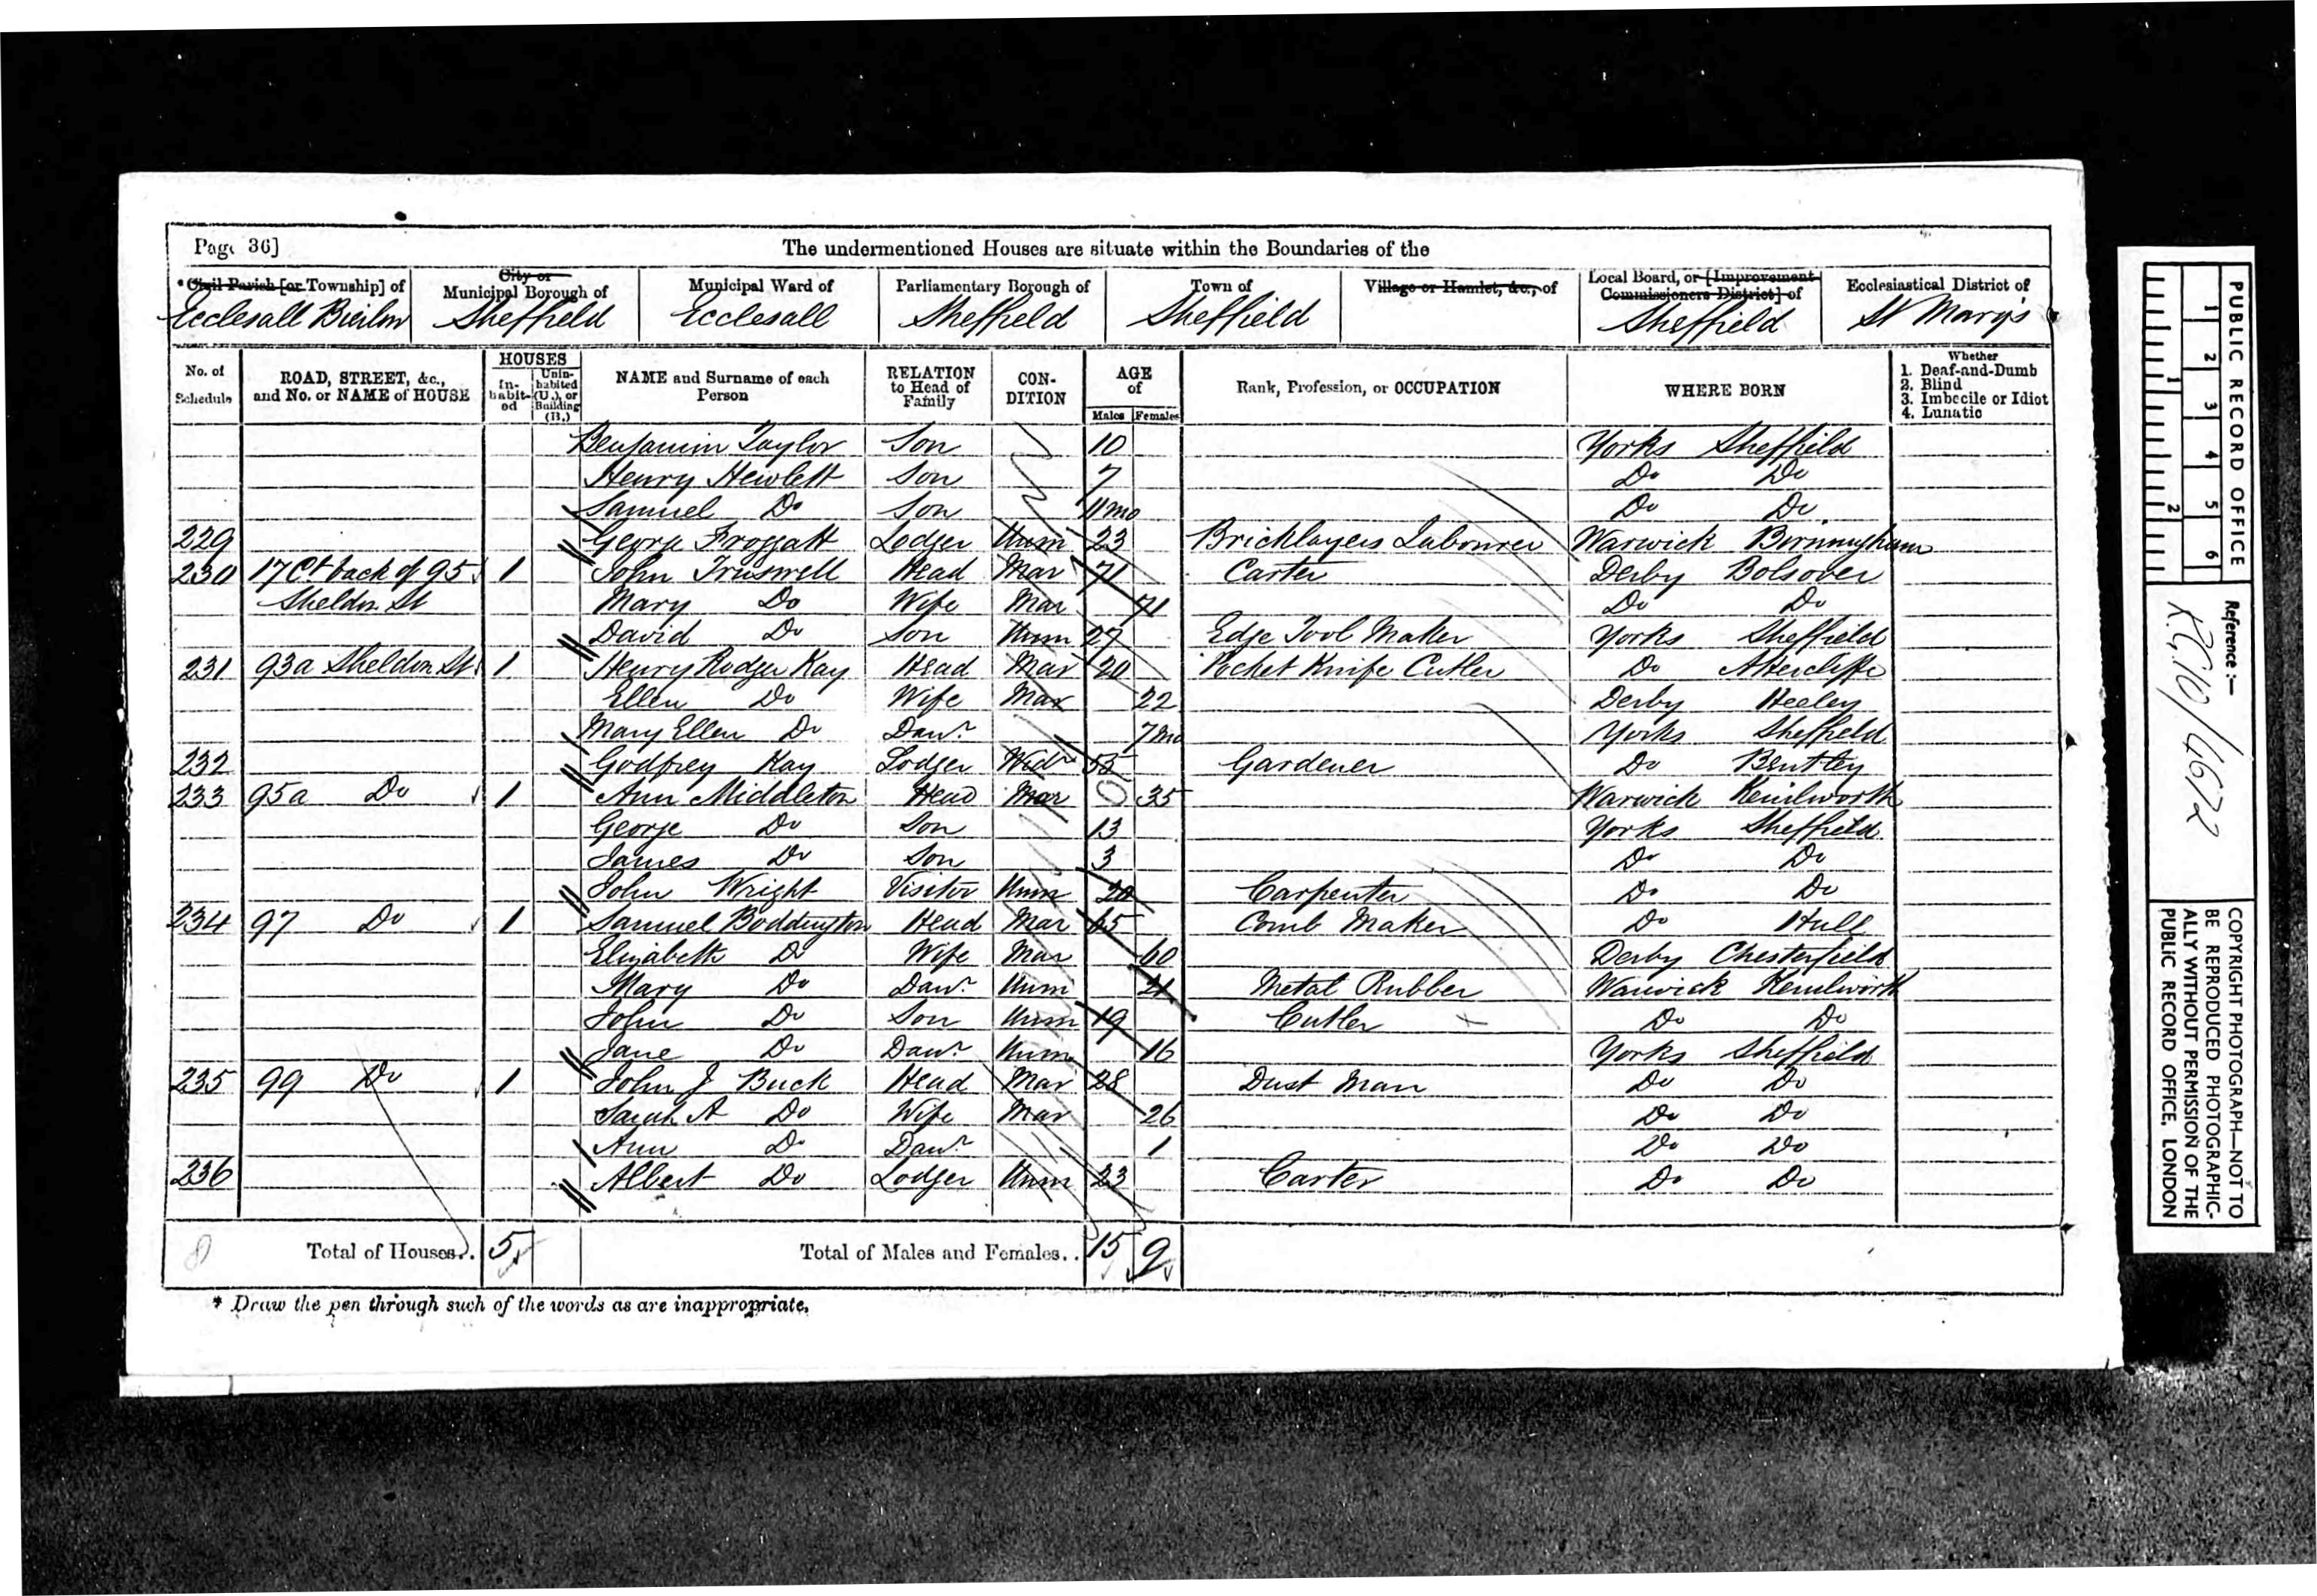 Page 36]
The undermentioned Houses are situate within the Boundaries of the
* Civil Parish [or Township] of
City or Municipal Borough of
Municipal Ward of
Parliamentary Borough of
Town of
Village or Hamlet, &c., of
Local Board, or [Improvement Commissioners District] of
Ecclesiastical District of
Ecclesall Bierlow Sheffield Ecclesall Sheffield Sheffield Sheffield St Mary's
No. of Schedule
ROAD, STREET, &c., and No. or NAME of HOUSE
HOUSES
In-habit-ed
Unin-habited (U.), or Building (B.)
NAME and Surname of each Person
RELATION to Head of Family
CON-DITION
AGE of
Males Females
Rank, Profession, or OCCUPATION
WHERE BORN
Whether
1. Deaf-and-Dumb
2. Blind
3. Imbecile or Idiot
4. Lunatic
Benjamin Taylor Son 10 Yorks Sheffield
Henry Hewlett Son 7 Do Do
Samuel Do Son 11 mo Do Do
229 George Froggatt Lodger Unm 23 Bricklayers Labourer Warwick Birmingham
230 17 Ct back of 95 1 John Truswell Head Mar 71 Carter Derby Bolsover
Sheldon St Mary Do Wife Mar 71 Do Do
David Do Son Unm 27 Edge Tool Maker Yorks Sheffield
231 93a Sheldon St 1 Henry Rodger Kay Head Mar 20 Pocket Knife Cutler Do Attercliffe
Ellen Do Wife Mar 22 Derby Heeley
Mary Ellen Do Daur 7 mo Yorks Sheffield
232 Godfrey Kay Lodger Widr 55 Gardener Do Bentley
233 95a Do 1 Ann Middleton Head Mar 35 Warwick Kenilworth
George Do Son 13 Yorks Sheffield
James Do Son 3 Do Do
John Wright Visitor Unm 20 Carpenter Do Do
234 97 Do 1 Samuel Boddington Head Mar 65 Comb Maker Do Hull
Elizabeth Do Wife Mar 60 Derby Chesterfield
Mary Do Daur Unm 21 Metal Rubber Warwick Kenilworth
John Do Son Unm 19 Cutler Do Do
Jane Do Daur Unm 16 Yorks Sheffield
235 99 Do 1 John J Buck Head Mar 28 Dust Man Do Do
Sarah A Do Wife Mar 26 Do Do
Ann Do Daur 1 Do Do
236 Albert Do Lodger Unm 23 Carter Do Do
8 Total of Houses.. 5 Total of Males and Females.. 15 9
* Draw the pen through such of the words as are inappropriate.
PUBLIC RECORD OFFICE
1 2 3 4 5 6
1 2
Reference :—
R.G.10/4672
COPYRIGHT PHOTOGRAPH—NOT TO
BE REPRODUCED PHOTOGRAPHIC-
ALLY WITHOUT PERMISSION OF THE
PUBLIC RECORD OFFICE, LONDON